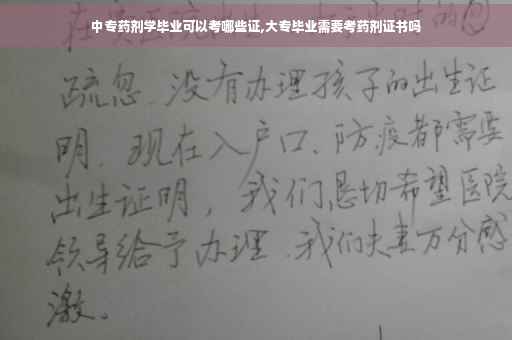 中专药剂学毕业可以考哪些证,大专毕业需要考药剂证书吗
疏忽、没有办理孩子的出生证
明、现在入户口、防疫都需要
出生证明，我们恳切希望医院
领导给予办理、我们夫妻万分感
激。